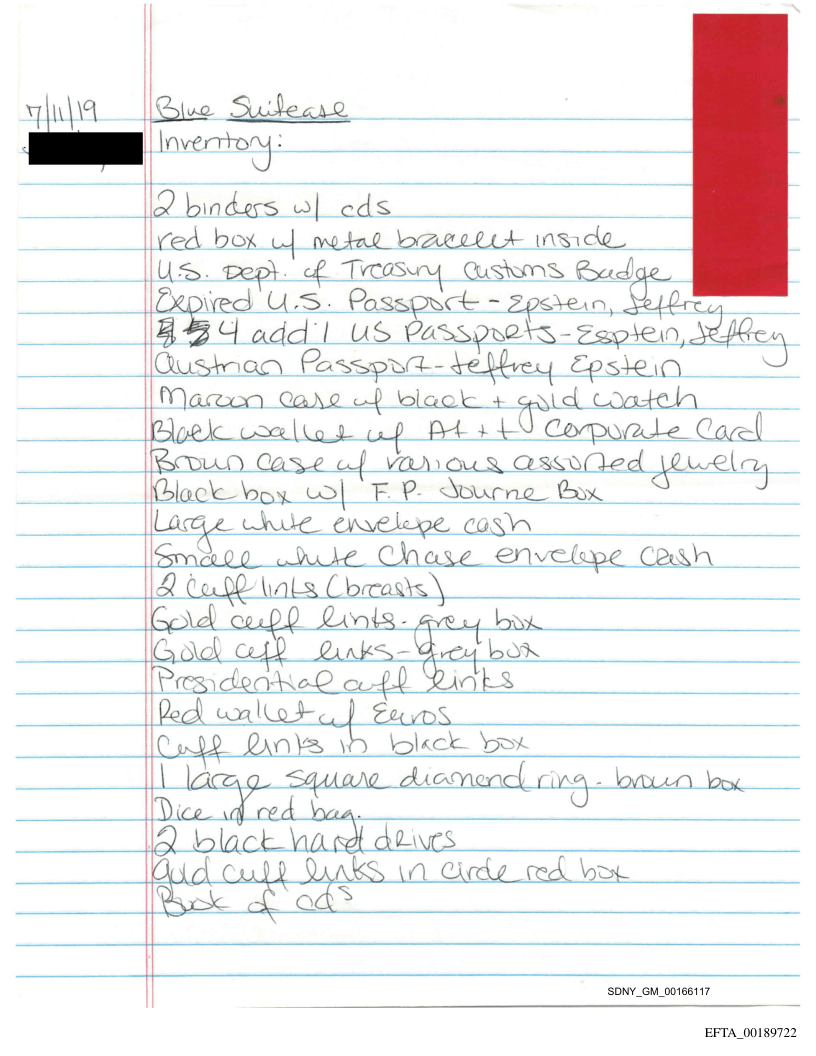 7/11/19
Blue Suitcase
Inventory:
2 binders w/ cds
red box w/ metal bracelet inside
U.S. Dept. of Treasury Customs Badge
Expired U.S. Passport - Epstein, Jeffrey
4 add'l US Passports - Esptein, Jeffrey
Austrian Passport - Jeffrey Epstein
Maroon case w/ black + gold watch
Black wallet w/ At + t Corporate Card
Brown case w/ various assorted jewelry
Black box w/ F.P. Journe Box
Large white envelope cash
Small white Chase envelope cash
2 cuff links (breasts)
Gold cuff links - grey box
Gold cuff links - grey box
Presidential cuff links
Red wallet w/ Euros
Cuff links in black box
1 large square diamond ring - brown box
Dice in red bag.
2 black hard drives
gold cuff links in circle red box
Book of cds
SDNY_GM_00166117
EFTA_00189722